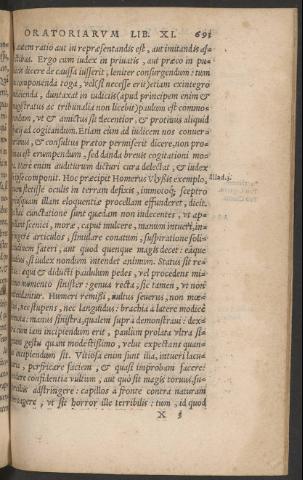 ORATORIARVM LIB. XI. 691
autem ratio aut in repræsentandis est, aut imitandis af-
fectibus. Ergo cum iudex in priuatis, aut præco in pu-
dicere de caussa iusserit, leniter consurgendum: tum
componenda toga, vel (si necesse erit) etiam ex integro
duntaxat in iudiciis (apud principem enim &
magistratus ac tribunalia non licebit) paulum est commo-
randum, vt & amictus sit decentior, & protinus aliquid
ad cogitandum. Etiam cum ad iudicem nos conuer-
& consultus prætor permiserit dicere, non pro-
est erumpendum, sed danda breuis cogitationi mo-
Mire enim auditurum dicturi cura delectat, & iudex
se componit. Hoc præcipit Homerus Vlyssis exemplo,
Iliad. 3.
stetisse oculis in terram defixis, immotóq; sceptro
illam eloquentiæ procellam effunderet, dicit.
hac cunctatione sunt quædam non indecentes, vt ap-
scenici, moræ, caput mulcere, manum intueri, in-
fringere articulos, simulare conatum, suspiratione soli-
fateri, aut quod quenque magis decet: eáque
si iudex nondum intendet animum. Status sit re-
æqui & diducti paulum pedes, vel procedens mi-
momento sinister: genua recta, sic tamen, vt non
Humeri remissi, vultus seuerus, non mœ-
nec stupens, nec languidus: brachia à latere modicè
manus sinistra, qualem supra demonstraui: dex-
iam incipiendum erit, paulum prolata vltra si-
gestu quam modestissimo, velut expectans quan-
incipiendum sit. Vitiosa enim sunt illa, intueri lacu-
perfricare faciem, & quasi improbam facere:
confidentia vultum, aut quò sit magis toruus, su-
adstringere: capillos à fronte contra naturam
vt sit horror ille terribilis: tum, id quod
X